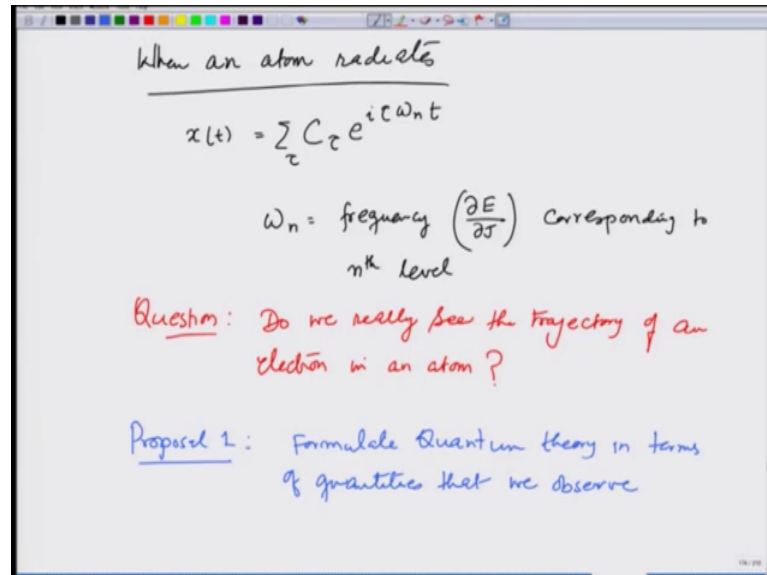 When an atom radiates
x(t) = ∑_τ C_τ e^{iτω_n t}
ω_n = frequency (∂E/∂J) corresponding to
nth level
Question: Do we really see the trajectory of an
electron in an atom?
Proposal 1: Formulate Quantum theory in terms
of quantities that we observe